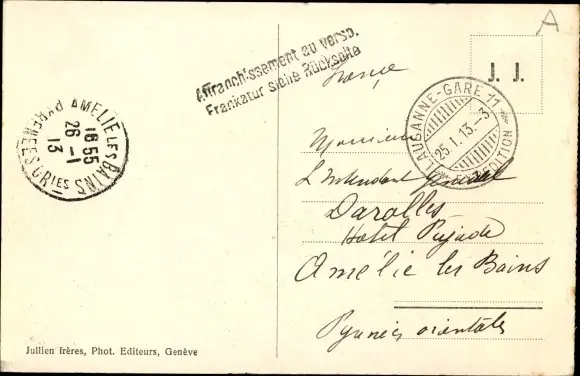 A
Affranchissement au verso.
Frankatur siehe Rückseite
J. J.
France
LAUSANNE-GARE 11
25.I.13.-3
EXPEDITION
AMELIE LES BAINS
16 55
26 -1
13
PYRENEES ORIES
Monsieur
L'Intendant Général
Darolles
Hotel Pujade
Amélie les Bains
Pyrnées orientales
Jullien frères, Phot. Editeurs, Genève